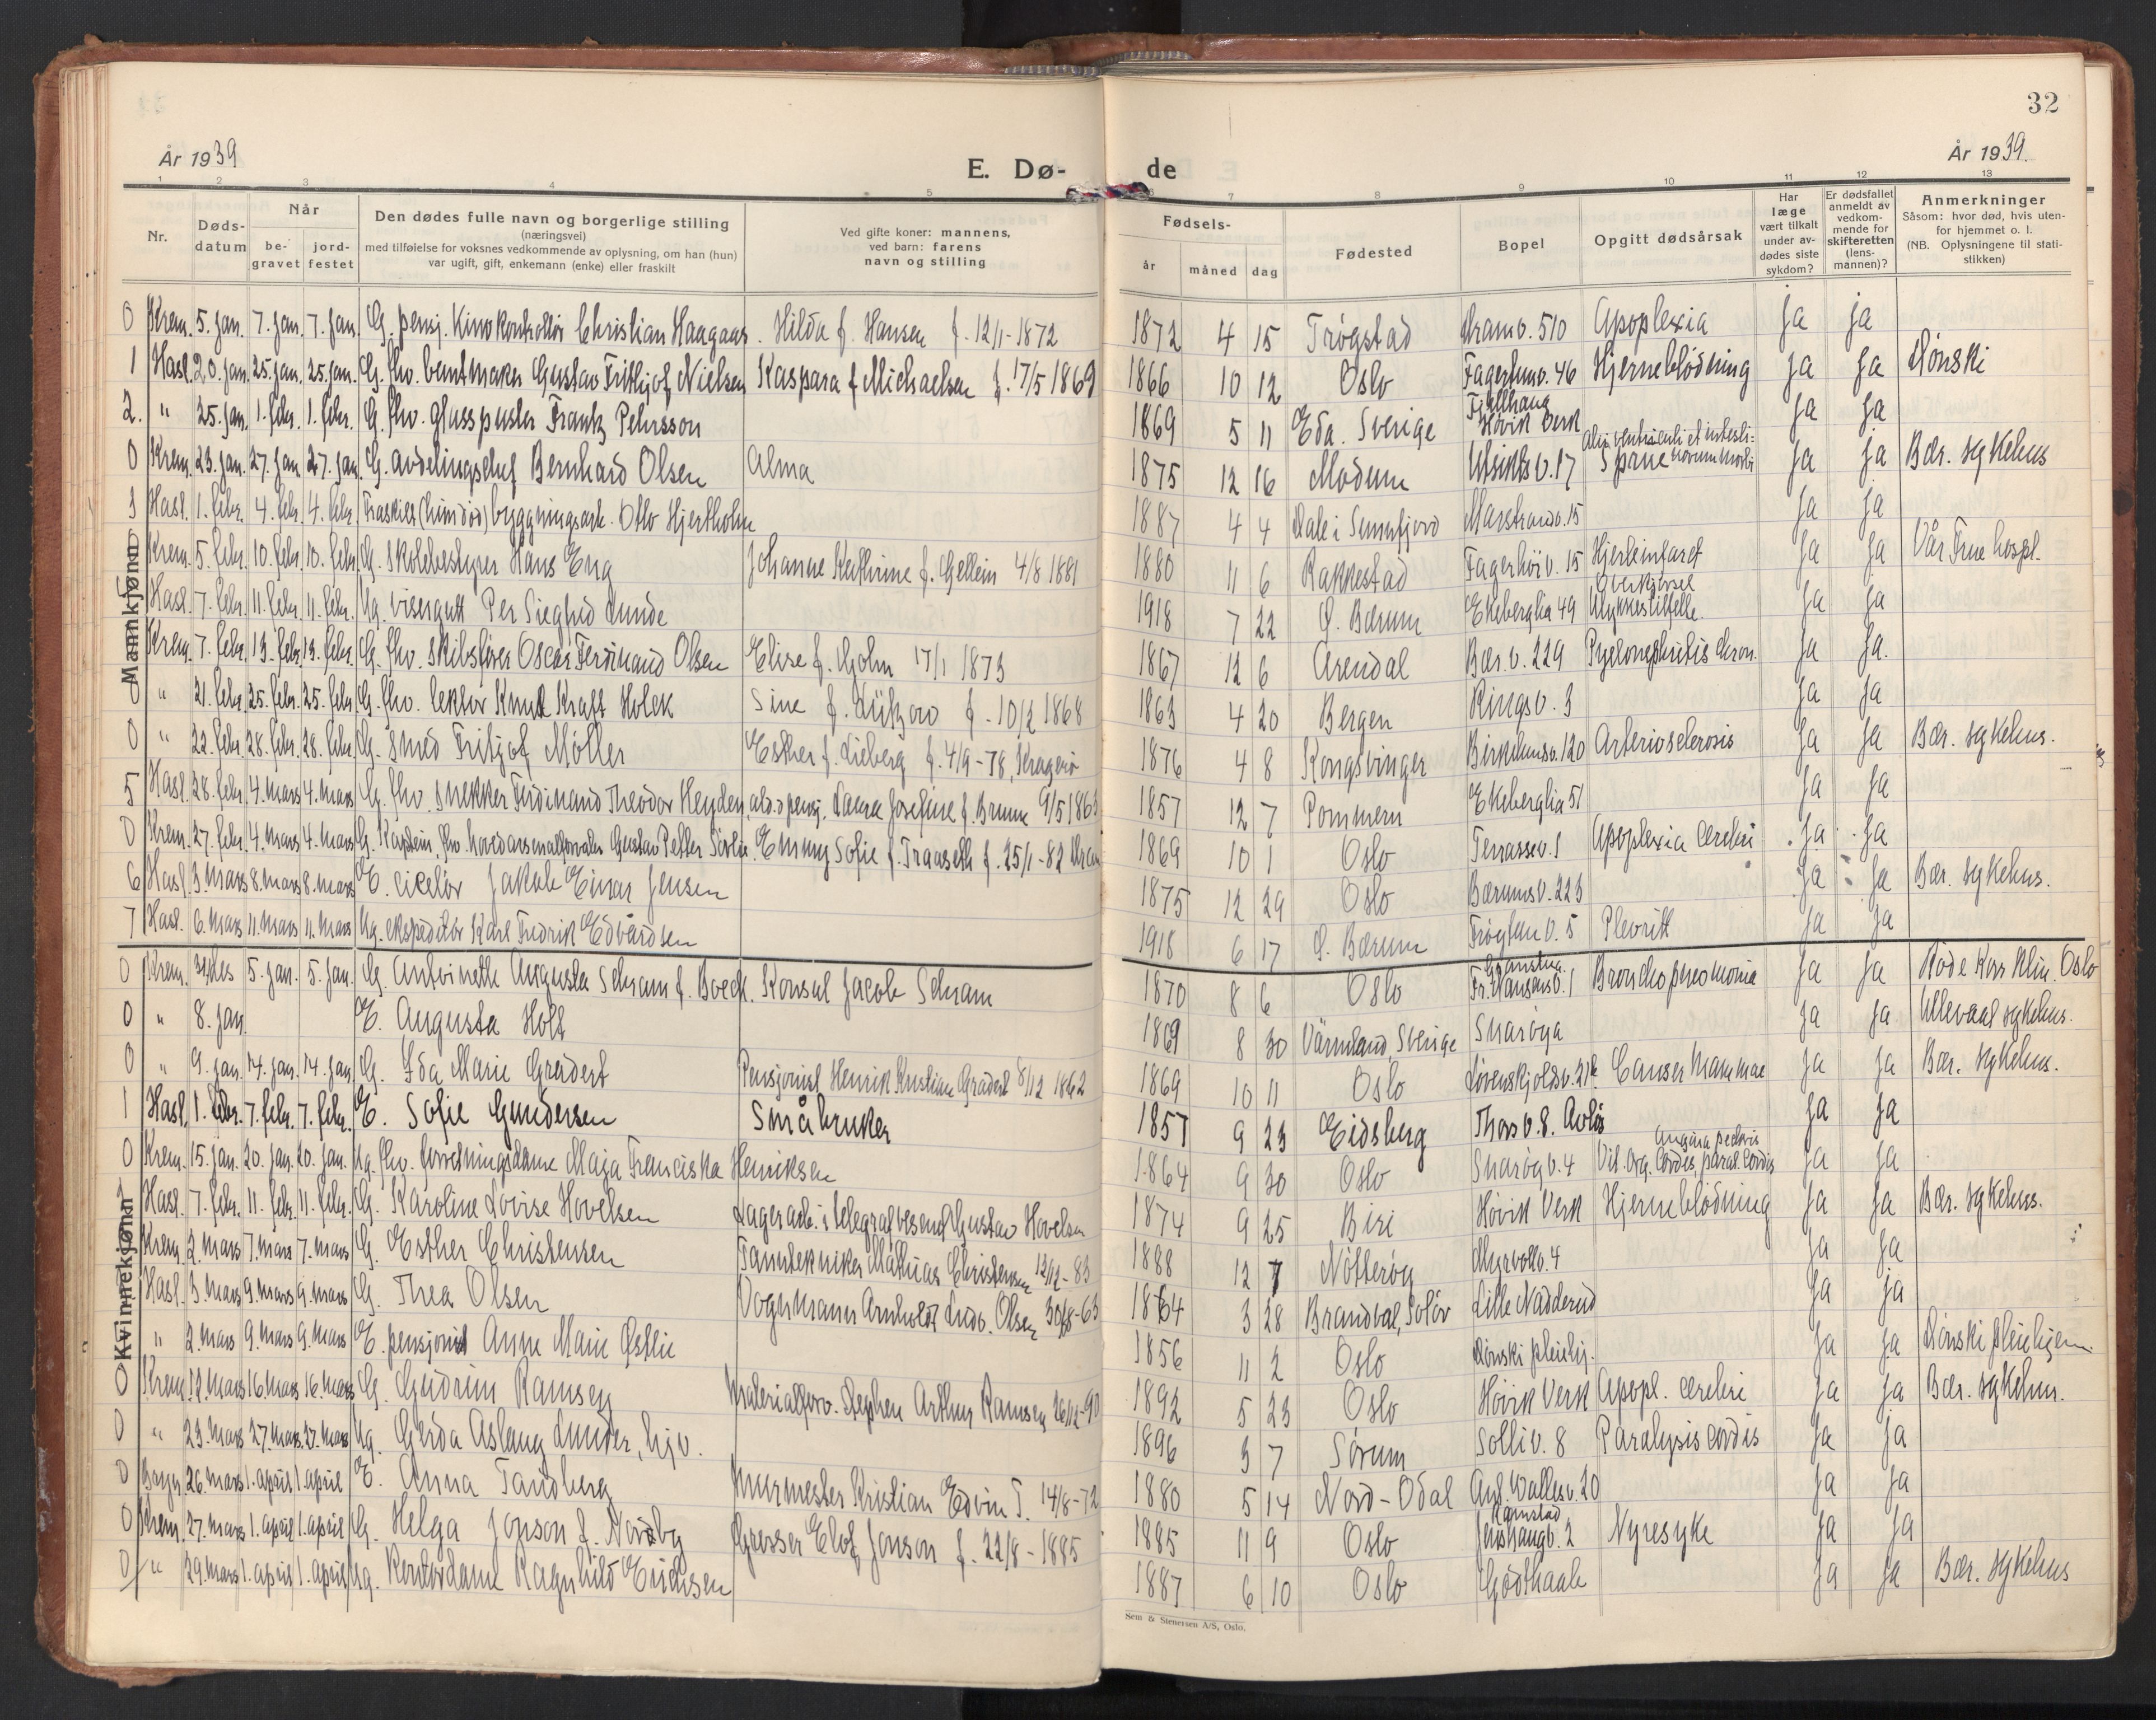 32
År 1939
År 1939.
E. Dø-
de
1 2 3 4 5 6 7 8 9 10 11 12 13
Nr.
Døds-
datum
Når
be-
gravet
jord-
festet
Den dødes fulle navn og borgerlige stilling
(næringsvei)
med tilføielse for voksnes vedkommende av oplysning, om han (hun)
var ugift, gift, enkemann (enke) eller fraskilt
Ved gifte koner: mannens,
ved barn: farens
navn og stilling
Fødsels-
år måned dag
Fødested
Bopel
Opgitt dødsårsak
Har
læge
vært tilkalt
under av-
dødes siste
sykdom?
Er dødsfallet
anmeldt av
vedkom-
mende for
skifteretten
(lens-
mannen)?
Anmerkninger
Såsom: hvor død, hvis uten-
for hjemmet o. l.
(NB. Oplysningene til stati-
stikken)
Mannkjønn
0 Krem. 5. jan. 7. jan. 7. jan. G. pensj. Kinokontrollør Christian Haagaas. Hilda f. Hansen f. 12/1-1872 1872 4 15 Trøgstad Dramv. 510 Apoplexia ja ja
1 Hasl. 20. jan. 25. jan. 25. jan. G. fhv. buntmaker Gustav Frithjof Nielsen Kaspara f Michaelsen f. 17/5 1869 1866 10 12 Oslo Fagerlundv. 46 Hjerneblödning ja ja Dønski
2. " 25. jan. 1. febr. 1. febr. G. fhv. glasspuster Frantz Petersson 1869 5 11 Eda. Sverige Fjellhaug Høvik Verk ja ja
0 Krem. 23. jan. 27. jan. 27. jan. G. avdelingschef Bernhard Olsen Alma 1875 12 16 Modum Utsiktsv. 17 Sprue ja ja Bær. sykehus
3 Hasl. 1. febr. 4. febr. 4. febr. Fraskilt byggningsark. Otto Hjertholm 1887 4 4 Dale i Sunnfjord Marstrandv. 15 ja ja
0 Krem. 5. febr. 10. febr. 10. febr. G. skolebestyrer Hans Eng Johanne Kathrine f. Gellein 4/8 1881 1880 11 6 Rakkestad Fagerhöiv. 15 Hjerteinfarct ja ja Vår Frue hospl.
Hasl. 7. febr. 11. febr. 11. febr. Ug. visergutt Per Siegfred Lunde 1918 7 22 Ø. Bærum Ekeberglia 49 Overkjørsel Ulykkestilfelle. ja ja
Krem. 7. febr. 13. febr. 13. febr. G. fhv. skibsfører Oscar Ferdinand Olsen Elise f. Holm 17/1 1873 1867 12 6 Arendal Bær. v. 229 Pyelonephritis chron. ja ja.
" 21. febr. 25. febr. 25. febr. G. fhv. lektor Knut Kraft Holck Sine f. Lützow f. 10/2 1868 1863 4 20 Bergen Ringsv. 3 ja ja
0 " 22. febr. 28. febr. 28. febr. G. smed Fritjof Møller Esther f. Lieberg f. 4/9-78, Kragerö 1876 4 8 Kongsvinger Birkelundsv. 120 Arteriosclerosis ja ja Bær. sykehus.
5 Hasl. 28. febr. 4. mars 4. mars G. fhv. snekker Ferdinand Theodor Heyden, ald. o pensj. Laura Josefine f. Bruun 9/5 1863 1857 12 7 Pommern Ekeberglia 51 ja ja
0 Krem. 27. febr. 4. mars 4. mars G. Kaptein, fhv. hovedarsenalforvalter Gustav Petter Sörlie. Emmy Sofie f. Traaseth f. 25/1-82 Dram 1869 10 1 Oslo Terrassev. 1 Apoplexia cerebri ja ja
6 Hasl 3. mars 8. mars 8. mars E. ciselør Jakob Einar Jensen 1875 12 29 Oslo Bærumsv. 223 ja ja Bær. sykehus.
7 Hasl. 6. mars 11. mars 11. mars Ug. ekspeditör Karl Fredrik Edvardsen 1918 6 17 Ø. Bærum Frøytunv. 5 Plevritt ja ja
Kvinnekjønn
0 Krem. 31/des 5. jan. 5. jan. G. Antoinette Augusta Schram f. Boeck. Konsul Jacob Schram 1870 8 6 Oslo Granstua Fr. Nansensv. 1 Bronchopneomonia ja ja Røde Kors Klin. Oslo
0 " 8. jan. E. Augusta Holt 1869 8 30 Värmland, Sverige Snarøya ja ja Ullevaal sykehus.
0 " 9. jan. 14. jan. 14. jan. G. Ida Marie Gradert Pensjonist Henrik Kristian Gradert 8/12 1862 1869 10 11 Oslo Løvenskjoldsv. 21b Canser Mammae ja ja Bær. sykehus.
1 Hasl. 1. febr. 7. febr. 7. febr. E. Sofie Gundersen Småbruker 1857 9 23 Eidsberg Thors v. 8. Avløs ja ja
0 Krem. 15. jan. 20. jan. 20. jan. Ug. fhv. forretningsdame Maja Franciska Henriksen 1864 9 30 Oslo Snarøyv. 4 Vit. Org. Cordis, Angina pectoris paral. cordis ja ja
Hasl. 7. febr. 11. febr. 11. febr. G. Karoline Lovise Hovelsen Lagerarb. i telegrafvesenet Gustav Hovelsen 1874 9 25 Biri Høvik Verk Hjerneblödning ja ja Bær. sykehus.
Krem 2. mars 7. mars 7. mars G. Esther Christensen Tanntekniker Mathias Christensen 12/12-83 1888 12 7 Nötterøy Myrvollv. 4 ja ja
Hasl. 3. mars 9. mars 9. mars G. Thea Olsen Vognmann Arnholdt Ludv. Olsen 30/8-63 1864 3 28 Brandval, Solör Lille Nadderud ja ja
" 2. mars 9. mars 9. mars E. pensjonist Anne Marie Østlie 1856 11 2 Oslo Dønski pleiehj. ja ja Dønski pleiehjem
0 Krem. 12. mars 16. mars 16. mars G. Gudrun Ramsey Materialforv. Stephen Arthur Ramsey 26/12-90 1892 5 23 Oslo Høvik Verk Apopl. cerebri ja ja Bær. sykehus.
0 " 23. mars 27. mars. 27. mars Ug. Gerda Aslaug Lunder, hjv. 1896 3 7 Sørum Solliv. 8 Paralysis cordis ja ja
0 26. mars 1. april 1. april E. Anna Tandberg Murmester Kristian Edvin T. 14/8-72 1880 5 14 Nord-Odal Ant. Wallesv. 20 ja ja
0 Krem. 27. mars 1. april 1. april G. Helga Jonson f. Nordby Grosser Elof Jonson f. 22/8-1885 1885 11 9 Oslo Ramstad 2 Nyresyke ja ja
0 " 29. mars 1. april 1. april Ug. Kontordame Ragnhild Erichsen 1887 6 10 Oslo Godthaab ja ja Bær. sykehus
Sem & Stenersen A/S, Oslo.